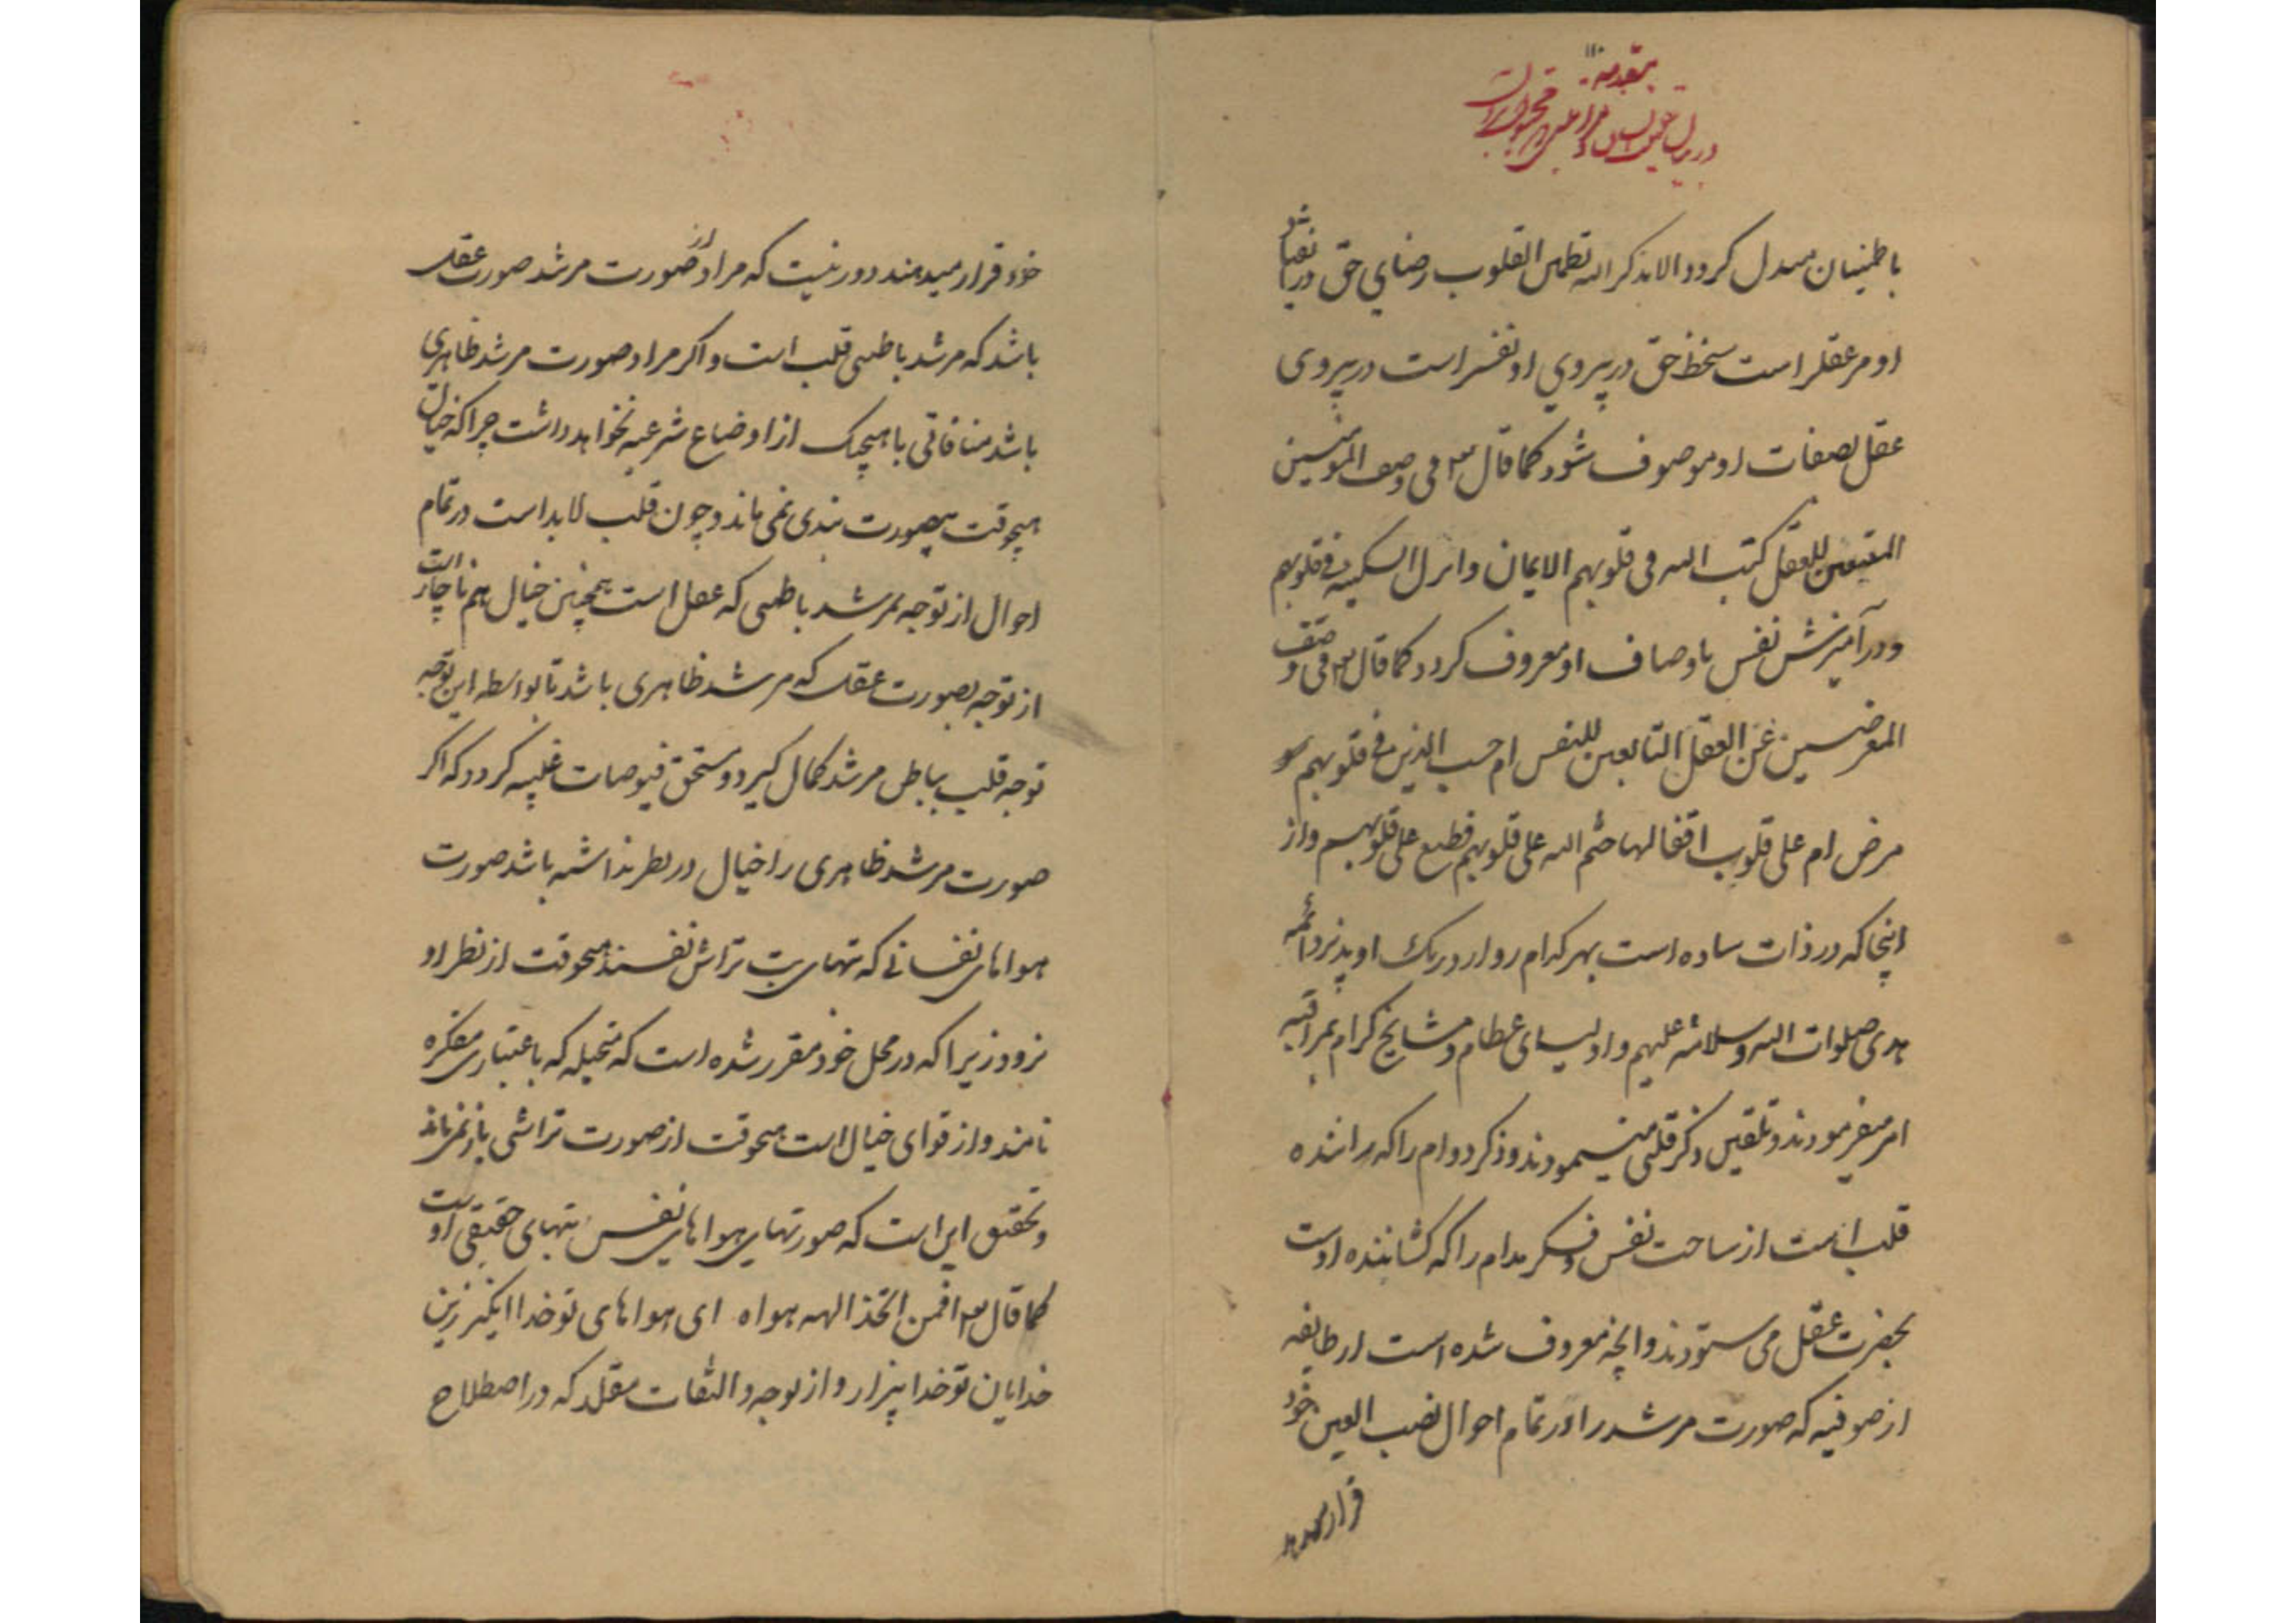 مقدمه
در بیان
باطمینان مبدل کردد الا بذکر الله تطمئن القلوب رضای حق در انقیاد
او مر عقلراست سخط حق در پیروی او نفسراست در پیروی
عقل بصفات او موصوف شود کما قال تع فی وصف المؤمنین
المتبعین للعقل کتب الله فی قلوبهم الایمان وانزل السکینه فی قلوبهم
و در آمیزش نفس باوصاف او معروف کردد کما قال تع فی وصف
المعرضین عن العقل التابعین للنفس ام حسب الذین فی قلوبهم
مرض ام علی قلوب اقفالها ختم الله علی قلوبهم فطبع علی قلوبهم و از
اینجا که در ذات ساده است بهر کدام رو ارد رنک او پذیرد ائمه
هدی صلوات الله وسلامه علیهم و اولیای عظام و مشایخ کرام بمراقبه
امر میفرمودند و تلقین ذکر قلبی مینمودند و ذکر دوام را که راننده
قلب است از ساحت نفس و فکر مدام را که کشاننده اوست
بحضرت عقل می ستودند و آنچه معروف شده است از طایفه
از صوفیه که صورت مرشد را در تمام احوال نصب العین خود
قرار میدهند
خود قرار میدهند دور نیست که مراد از صورت مرشد صورت عقل
باشد که مرشد باطنی قلب است و اکر مراد صورت مرشد ظاهری
باشد منافاتی با هیچیک از اوضاع شرعیه نخواهد داشت چرا که خیال
هیچوقت بیصورت بندی نمی ماند و چون قلب لابد است در تمام
احوال از توجه بمرشد باطنی که عقل است همچنین خیال هم ناچار است
از توجه بصورت عقل که مرشد ظاهری باشد تا بواسطه این توجه
توجه قلب بباطن مرشد کمال کیرد و مستحق فیوضات غیبیه کردد که اکر
صورت مرشد ظاهری را خیال در نظر نداشته باشد صورت
هواهای نفسانی که بتهای بت تراش نفسند هیچوقت از نظر او
نرود زیرا که در محل خود مقرر شده است که متخیله که باعتباری مفکره
نامند و از قوای خیال است هیچوقت از صورت تراشی باز نمی ماند
و تحقیق این است که صورتهای هواهای نفس بتهای حقیقی اوست
کما قال تع افمن اتخذ الهه هواه ای هواهای تو خدا انکیز زین
خدایان تو خدا بیزار و از توجه و التفات مقلد که در اصطلاح